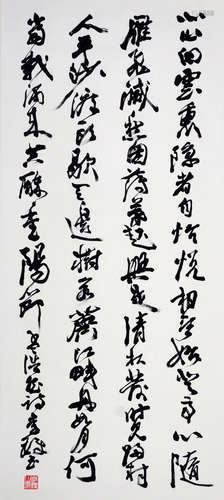 北山白雲裏隱者自怡悅相望始登高心隨
雁飛滅愁因薄暮起興是清秋發時見歸村
人平沙渡頭歇天邊樹若薺江畔舟如月何
當載酒來共醉重陽節孟浩然詩李鐸书